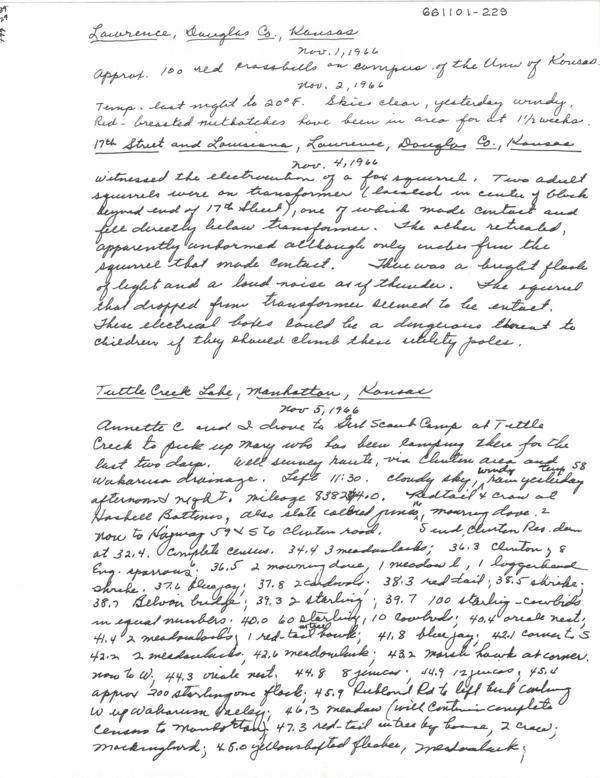 661101-229
Lawrence, Douglas Co., Kansas
Nov. 1, 1966
Approx. 100 red crossbills on campus of the Univ of Kansas.
Nov. 2, 1966
Temp. last night to 20°F. Skies clear, yesterday windy.
Red-breasted nuthatches have been in area for at 1 1/2 weeks.
17th Street and Louisiana, Lawrence, Douglas Co., Kansas
Nov. 4, 1966
Witnessed the electrocution of a fox squirrel. Two adult
squirrels were on transformer (located in center of block
beyond end of 17th Street), one of which made contact and
fell directly below transformer. The other retreated,
apparently unharmed although only inches from the
squirrel that made contact. There was a bright flash
of light and a loud noise as if thunder. The squirrel
that dropped from transformer seemed to be entact.
These electrical boxes could be a dangerous threat to
children if they should climb these utility poles.
Tuttle Creek Lake, Manhattan, Kansas
Nov 5, 1966
Annette C and I drove to Girl Scout Camp at Tuttle
Creek to pick up Mary who has been camping there for the
last two days. Will survey route, via Clinton area and
Wakarusa drainage. Left 11:30. Cloudy sky, windy temp 58 rain yesterday
afternoon & night. Mileage 83824.0. Redtail & crow at
Haskell Bottoms, also slate colored juncos, mourning dove. 2
now to Highway 59 & S to Clinton road. S end, Clinton Res. dam
at 32.4. Complete census. 34.4 3 meadowlarks; 36.3 Clinton, 8
Eng. sparrows; 36.5 2 mourning dove, 1 meadow l, 1 loggerhead
shrike; 37.6 bluejay; 37.8 2 cardinals; 38.3 red-tail; 38.5 shrike;
38.7 Belvoir bridge; 39.3 2 starling; 39.7 100 starling-cowbirds
in equal numbers; 40.0 60 starling, 10 cowbirds; 40.4 oriole nest;
41.4 2 meadowlarks, 1 red-tail hawk in tree; 41.8 blue jay; 42.1 corner to S
42.2 2 meadowlarks, 42.6 meadowlark; 43.2 marsh hawk at corner.
now to W, 44.3 oriole nest. 44.8 8 juncos; 44.9 12 juncos; 45.4
approx 200 starling one flock; 45.9 Richland Rd to left but continue
W up Wakarusa Valley; 46.3 meadow (will continue complete
census to Manhattan) 47.3 red-tail in tree by house, 2 crow;
mockingbird; 48.0 yellowshafted flicker, meadowlark;